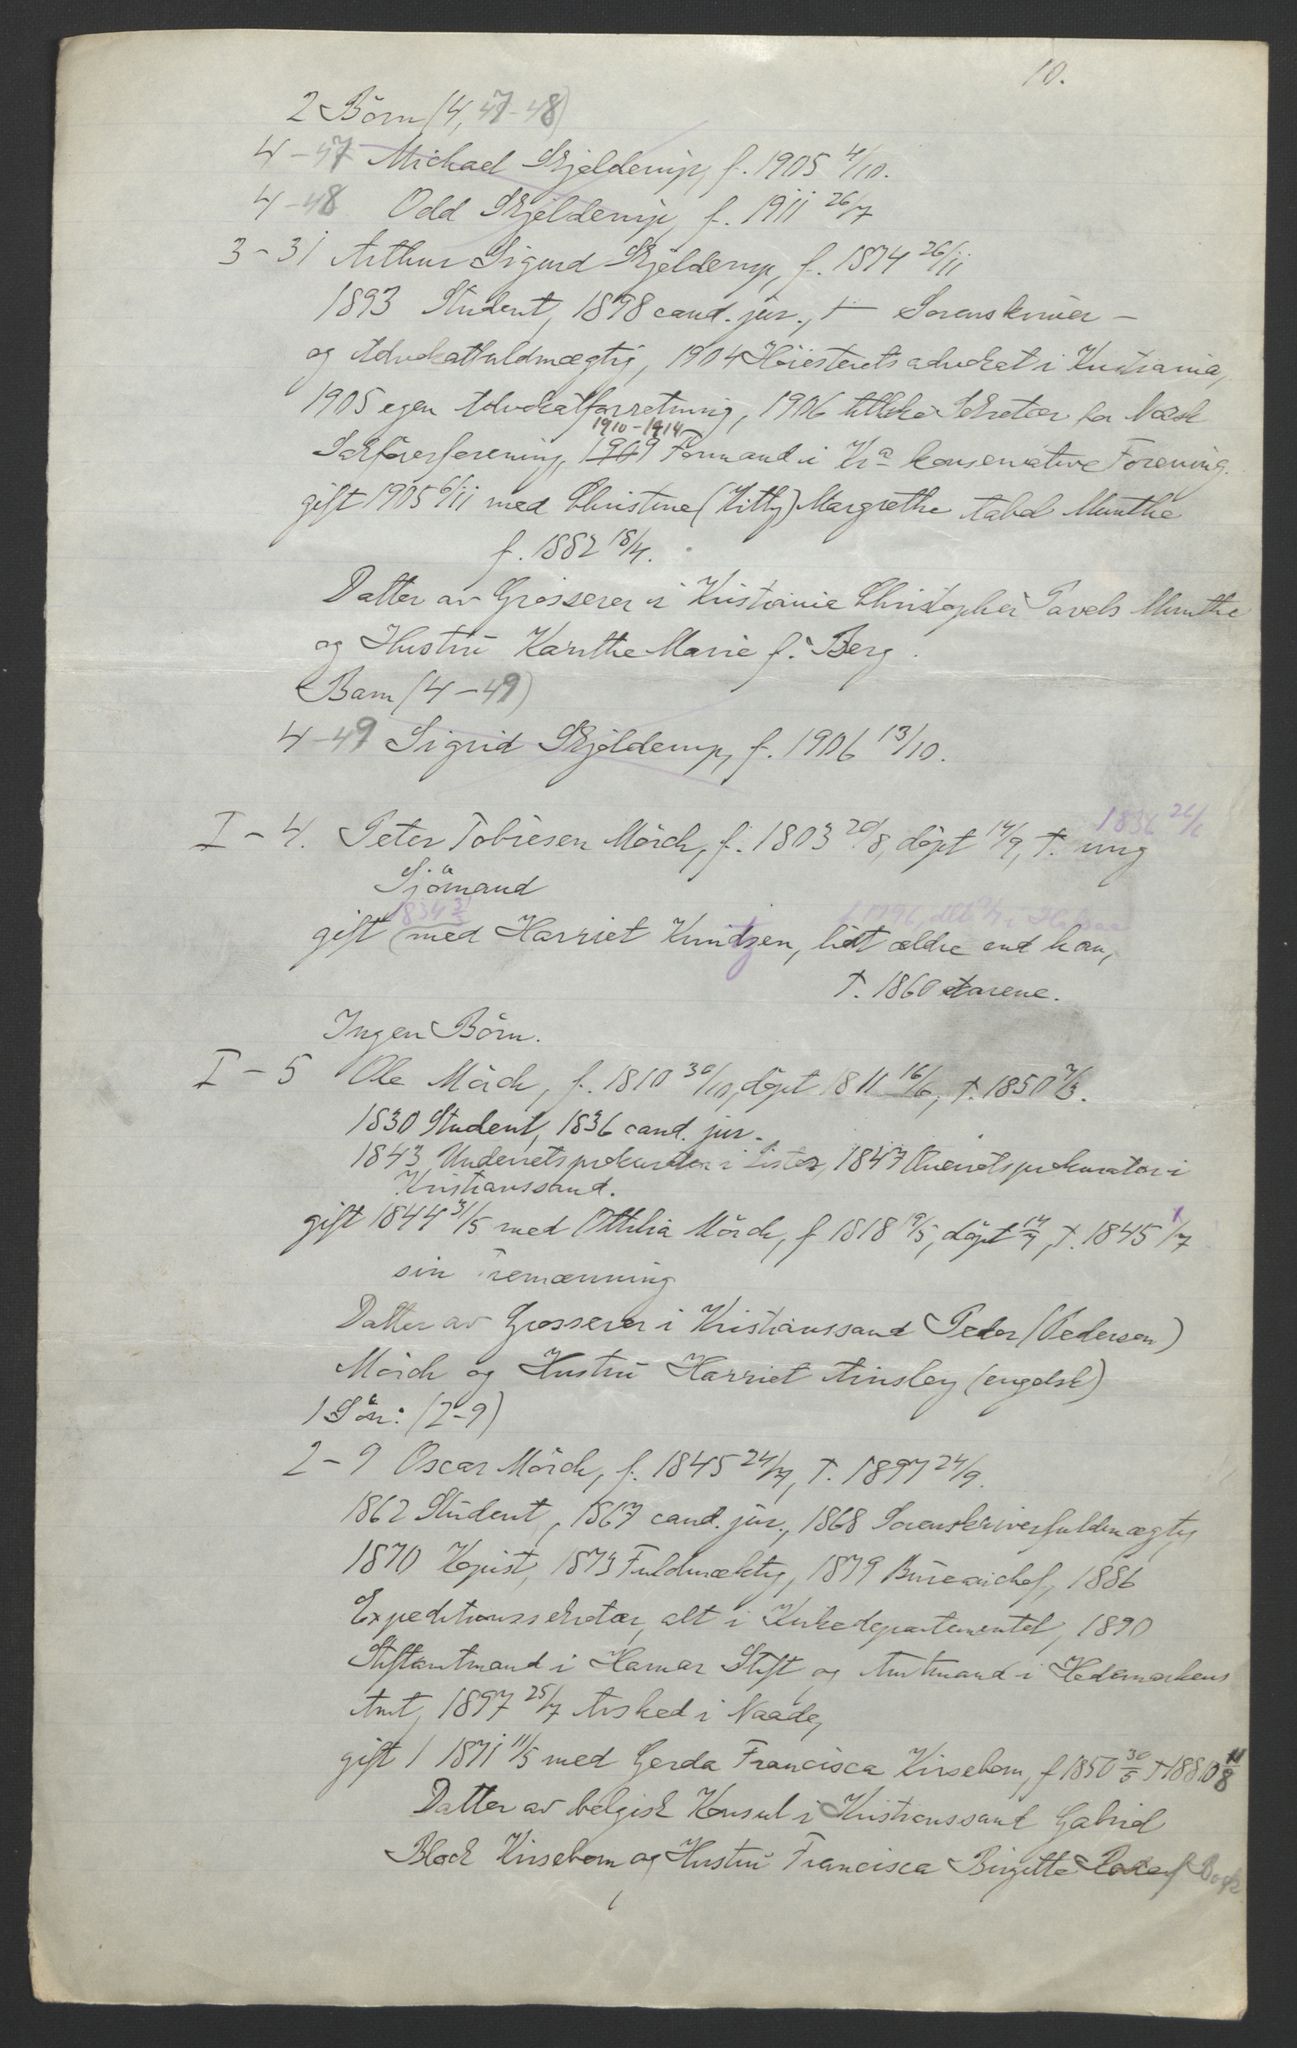 10.
2 Börn (4, 47-48)
4-47 Michael Skjelderup, f. 1905 4/10.
4-48 Odd Skjelderup, f. 1911 26/7
3-31 Arthur Sigurd Skjelderup, f. 1874 26/11
1893 Student, 1898 cand. jur., + Sorenskriver-
og Advokatfuldmægtig, 1904 Höiesteretsadvokat i Kristiania,
1905 egen Advokatforretning, 1906 tillike Sekretær for Norsk
1910-1914
Sakförerforening, 1909 Formand i Kra konservative Forening.
gift 1905 6/11 med Christine (Kitty) Margrethe Abel Munthe
f. 1882 18/4.
Datter av Grosserer i Kristiania Christopher Pavels Munthe
og Hustru Karithe Marie f. Berg.
Barn (4-49)
4-49 Sigrid Skjelderup, f. 1906 13/10.
1836
I-4. Peter Tobiesen Mörch, f. 1803 20/8, döpt 14/9, †. ung
Sjömand
1834
gift med Harriet Knudtzen, lidt ældre end han,
†. 1860 Aarene.
Ingen Börn.
I-5 Ole Mörch, f. 1810 30/10, döpt 1811 16/6, †. 1850 7/3.
1830 Student, 1836 cand. jur.
1843 Underretsprokurator i Lister, 1847 Overretsprokurator i
Kristianssand.
gift 1844 31/5 med Ottilia Mörch, f 1818 19/5, döpt 14/7, †. 1845 1/7
sin Tremænning
Datter av Grosserer i Kristianssand Peder (Pedersen)
Mörch og Hustru Harriet Ainsley (engelsk)
1 Sön: (2-9)
2-9 Oscar Mörch, f. 1845 24/4, †. 1897 24/9.
1862 Student, 1867 cand. jur., 1868 Sorenskriverfuldmægtig,
1870 Kopist, 1873 Fuldmæktig, 1879 Bureauchef, 1886
Expeditionssekretær, alt i Kirkedepartementet, 1890
Stiftamtmand i Hamar Stift og Amtmand i Hedemarkens
Amt, 1897 25/7 Avsked i Naade,
gift 1 1871 11/5 med Gerda Francisca Kirsebom, f 1850 30/5 † 1880 11/8
Datter av belgisk Konsul i Kristianssand Gabriel
Block Kirsebom og Hustru Francisca Birgitte f Bock